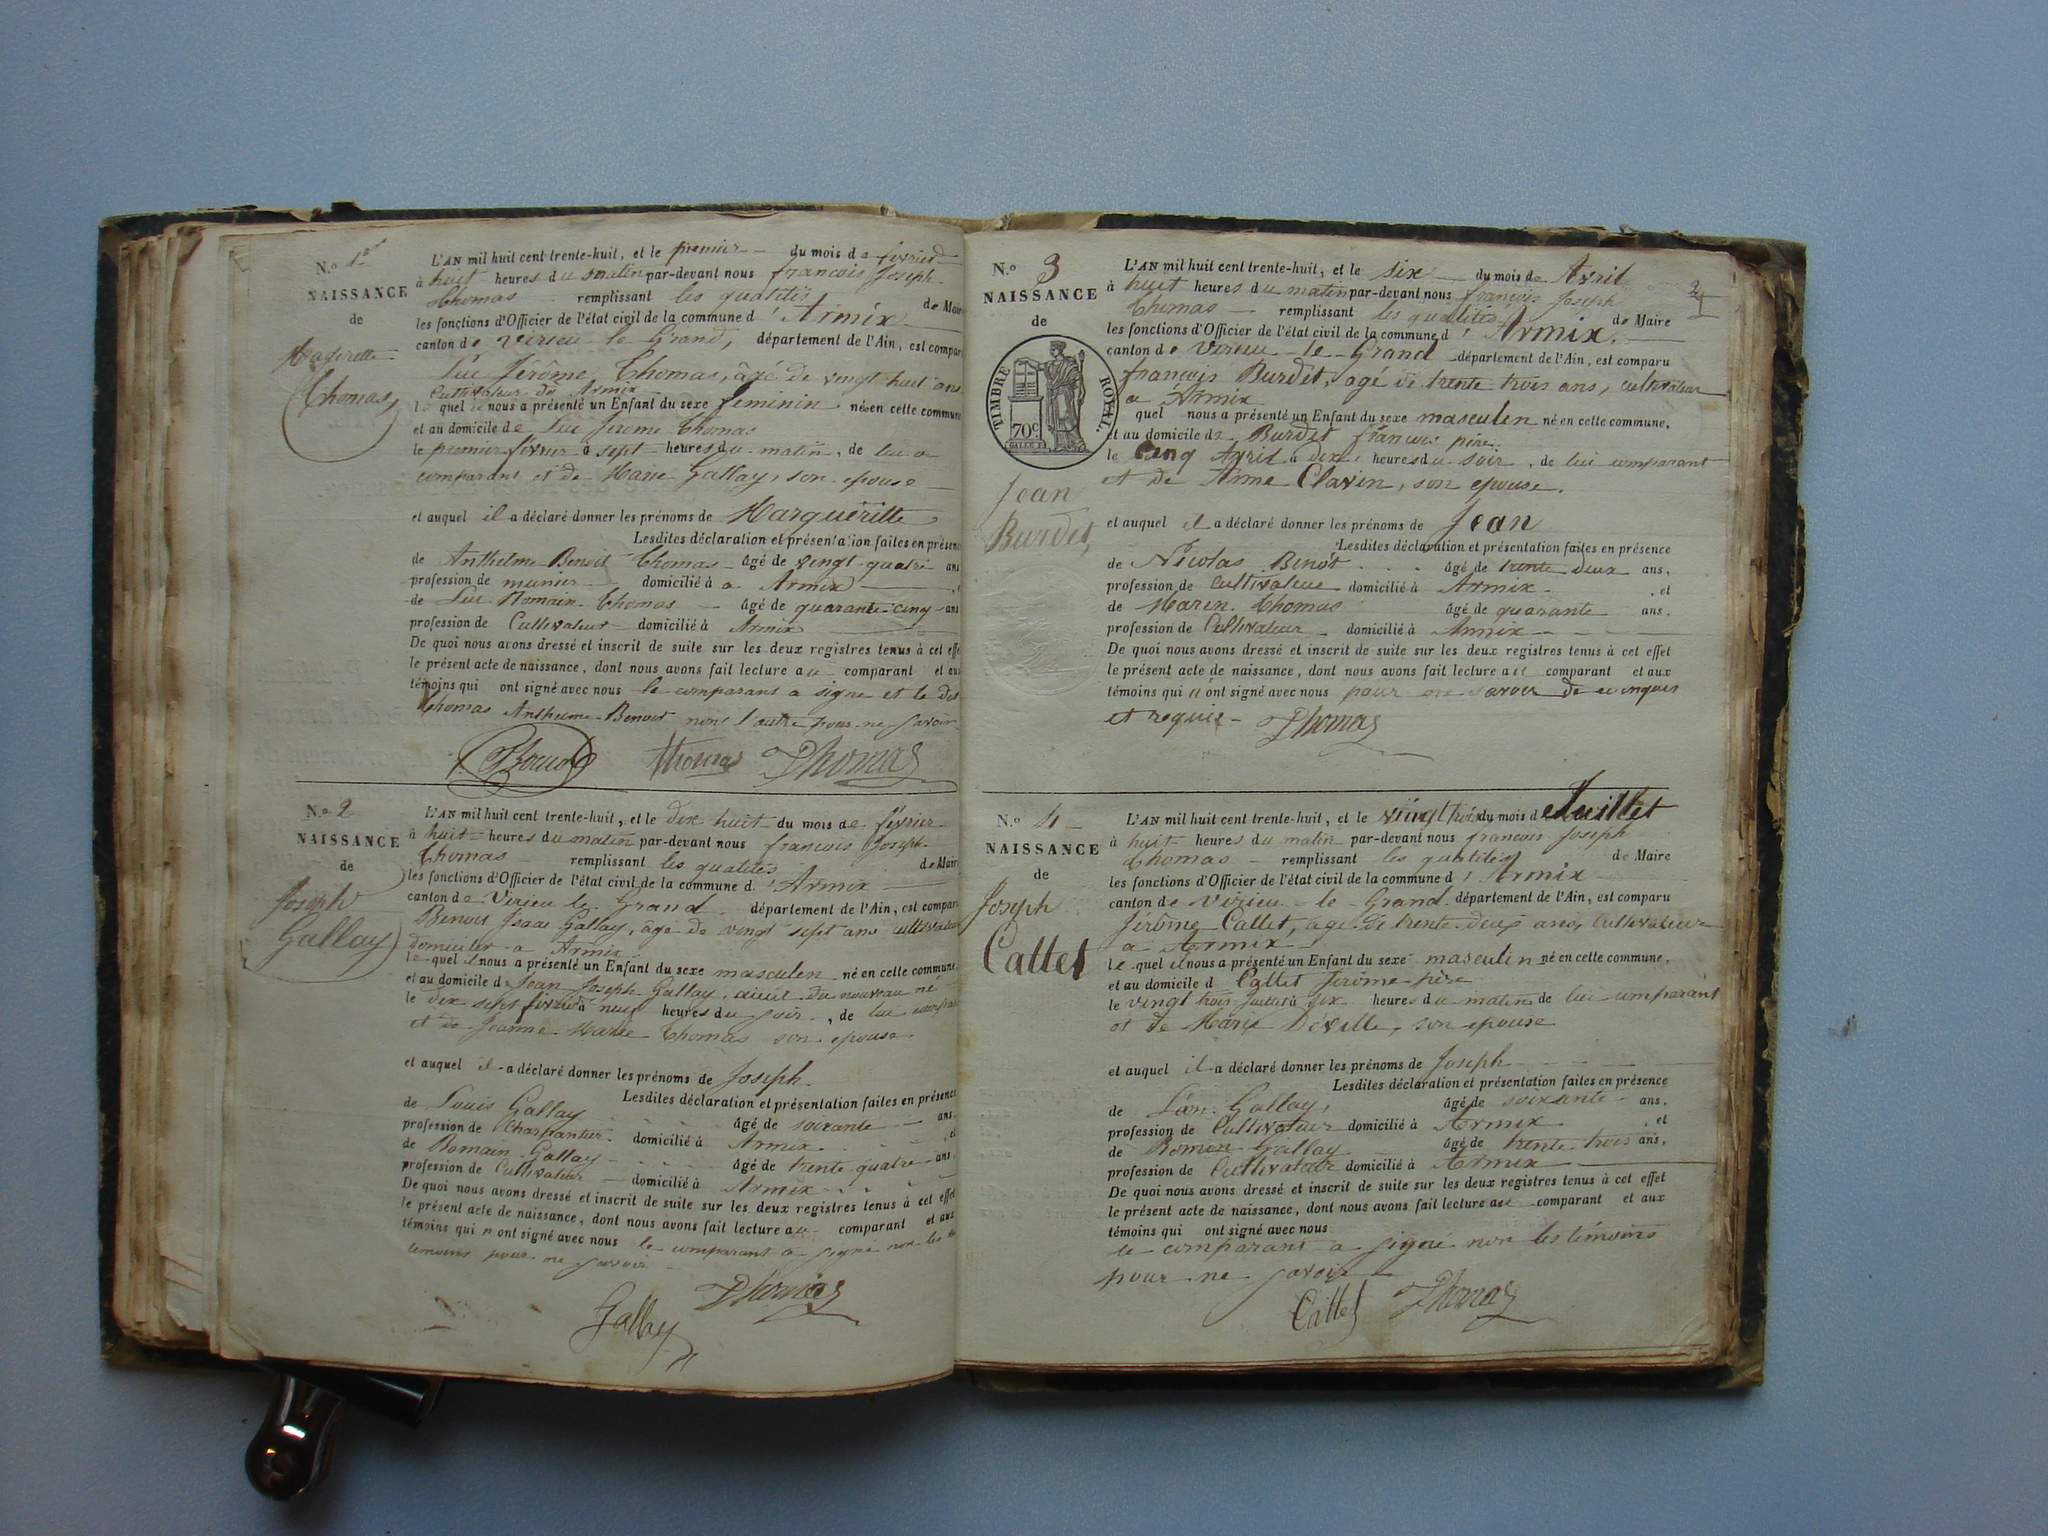 N.º 1er
NAISSANCE
de
Thomas,
L'AN mil huit cent trente-huit, et le premier du mois de février
à huit heures du matin par-devant nous françois Joseph
Thomas remplissant les qualités de Maire
les fonctions d'Officier de l'état civil de la commune d'Armix
canton de Virieu le Grand, département de l'Ain, est comparu
Luc Jérôme Thomas, âgé de vingt huit ans
Cultivateur du Armix
le quel nous a présenté un Enfant du sexe feminin née en cette commune
et au domicile de Luc Jérome Thomas
le premier février à sept heures du matin, de lui
comparant et de Marie Gallay, son epouse
et auquel il a déclaré donner les prénoms de Margueritte
Lesdites déclaration et présentation faites en présence
de Anthelme Benoit Thomas âgé de vingt quatre ans
profession de munier domicilié à a Armix
de Luc Romain Thomas âgé de quarante-cinq ans
profession de Cultivateur domicilié à Armix
De quoi nous avons dressé et inscrit de suite sur les deux registres tenus à cet effe
le présent acte de naissance, dont nous avons fait lecture au comparant et aux
témoins qui ont signé avec nous le comparant a signé et le dit
Thomas Anthelme Benoit non l'autre pour ne savoir
Thomas Thomas
N.º 2
NAISSANCE
de
Joseph
Gallay
L'AN mil huit cent trente-huit, et le dix huit du mois de février
à huit heures du matin par-devant nous françois Joseph
Thomas remplissant les qualités de Mair
les fonctions d'Officier de l'état civil de la commune d'Armix
canton de Virieu le Grand département de l'Ain, est compar
Benoit Isaac Gallay, âgé de vingt sept ans cultivateur
domicilier a Armix
le quel il nous a présenté un Enfant du sexe masculen né en cette commune,
et au domicile de Jean Joseph Gallay, aieul du nouveau né
le dix sept février à neuf heures du soir, de lui comparant
et de Jeanne Marie Thomas son epouse
et auquel il a déclaré donner les prénoms de Joseph
Lesdites déclaration et présentation faites en présence
de Louis Gallay âgé de soixante ans
profession de Charpantier domicilié à Armix et
de Romain Gallay âgé de trente quatre ans
profession de Cultivateur domicilié à Armix
De quoi nous avons dressé et inscrit de suite sur les deux registres tenus à cet effet
le présent acte de naissance, dont nous avons fait lecture au comparant et aux
témoins qui n ont signé avec nous le comparant a signé non les
temoins pour ne savoir
Gallay Thomas
N.º 3
NAISSANCE
de
TIMBRE ROYAL.
70c
Jean
Burdet,
L'AN mil huit cent trente-huit, et le six du mois de Avril
à huit heures du matin par-devant nous françois Joseph
Thomas remplissant les qualités de Maire
les fonctions d'Officier de l'état civil de la commune d'Armix.
canton de Virieu le Grand département de l'Ain, est comparu
françois Burdet, agé de trente trois ans, cultivateur
a Armix
quel nous a présenté un Enfant du sexe masculen né en cette commune,
et au domicile de Burdet françois père
le Cinq Avril à dix heures du soir, de lui comparant
et de Anne Clavin, son epouse.
et auquel il a déclaré donner les prénoms de Jean
Lesdites déclaration et présentation faites en présence
de Nicolas Benoît âgé de trente deux ans,
profession de Cultivateur domicilié à Armix, et
de Marin Thomas âgé de quarante ans.
profession de Cultivateur domicilié à Armix
De quoi nous avons dressé et inscrit de suite sur les deux registres tenus à cet effet
le présent acte de naissance, dont nous avons fait lecture au comparant et aux
témoins qui n ont signé avec nous pour ne savoir de ce enquis
et requis Thomas
N.º 4
NAISSANCE
de
Joseph
Cattet
L'AN mil huit cent trente-huit, et le vingt trois du mois de Juillet
à huit heures du matin par-devant nous francois Joseph
Thomas remplissant les qualités de Maire
les fonctions d'Officier de l'état civil de la commune d'Armix
canton de Virieu le Grand département de l'Ain, est comparu
Jérôme Cattet, agé de trente deux ans, Cultivateur
a Armix
le quel il nous a présenté un Enfant du sexe masculin né en cette commune,
et au domicile d Cattet Jerôme père
le vingt trois Juillet à six heures du matin de lui comparant
et de Marie Déville, son epouse
et auquel il a déclaré donner les prénoms de Joseph
Lesdites déclaration et présentation faites en présence
de Léon Gallay, âgé de soixante ans,
profession de Cultivateur domicilié à Armix, et
de Romin Gallay âgé de trente trois ans,
profession de Cultivateur domicilié à Armix
De quoi nous avons dressé et inscrit de suite sur les deux registres tenus à cet effet
le présent acte de naissance, dont nous avons fait lecture au comparant et aux
témoins qui ont signé avec nous
le comparant a signé non les témoins
pour ne savoir
Cattet Thomas